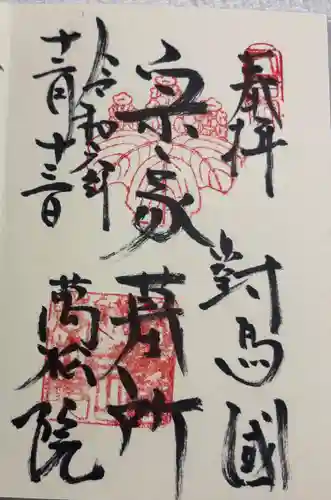 奉拝
對馬國
宗家墓所
令和六年
十二月十三日
萬松院